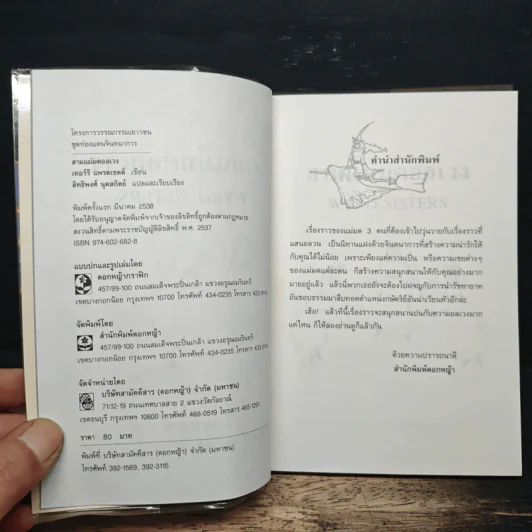 โครงการวรรณกรรมเยาวชน
ชุดท่องแดนจินตนาการ
สามแม่มดอลเวง
เทอร์รี่ แพรตเชตต์ เขียน
สิทธิพงศ์ นุตสถิตย์ แปลและเรียบเรียง
พิมพ์ครั้งแรก มีนาคม 2538
โดยได้รับอนุญาตจัดพิมพ์จากเจ้าของลิขสิทธิ์ถูกต้องตามกฎหมาย
สงวนสิทธิ์ตามพระราชบัญญัติลิขสิทธิ์ พ.ศ. 2537
ISBN 974-602-682-8
แบบปกและรูปเล่มโดย
ดอกหญ้ากราฟิก
457/99-100 ถนนสมเด็จพระปิ่นเกล้า แขวงอรุณอมรินทร์
เขตบางกอกน้อย กรุงเทพฯ 10700 โทรศัพท์ 434-0235 โทรสาร
จัดพิมพ์โดย
สำนักพิมพ์ดอกหญ้า
457/99-100 ถนนสมเด็จพระปิ่นเกล้า แขวงอรุณอมรินทร์
เขตบางกอกน้อย กรุงเทพฯ 10700 โทรศัพท์ 434-0235 โทรสาร
จัดจำหน่ายโดย
บริษัทสามัคคีสาร (ดอกหญ้า) จำกัด (มหาชน)
71/12-19 ถนนเทศบาลสาย 2 แขวงวัดกัลยาณ์
เขตธนบุรี กรุงเทพฯ 10600 โทรศัพท์ 466-0519 โทรสาร
ราคา 80 บาท
พิมพ์ที่ บริษัทสามัคคีสาร (ดอกหญ้า) จำกัด (มหาชน)
โทรศัพท์ 392-1569, 392-3115
คำนำสำนักพิมพ์
เรื่องราวของแม่มด 3 คนที่ต้องเข้าไปวุ่นวายกับเรื่องราวที่
แสนอลวน เป็นนิทานแฝงด้วยจินตนาการที่สร้างความน่ารักให้
กับคุณได้ไม่น้อย เพราะเพียงแค่ความเป็น หรือความเชยต่างๆ
ของแม่มดแต่ละตน ก็สร้างความสนุกสนานให้กับคุณอย่างมาก
มายอยู่แล้ว แล้วนี่พวกเธอยังจะต้องไปผจญกับการนำรัชทายาท
อันชอบธรรมมาสืบทอดตำแหน่งกษัตริย์อันน่าเวียนหัวอีกล่ะ
เฮ้อ! แล้วทีนี้เรื่องราวจะสนุกสนานปนกับความอลเวงมาก
แค่ไหน ก็ให้ลองอ่านดูก็แล้วกัน
ด้วยความปรารถนาดี
สำนักพิมพ์ดอกหญ้า